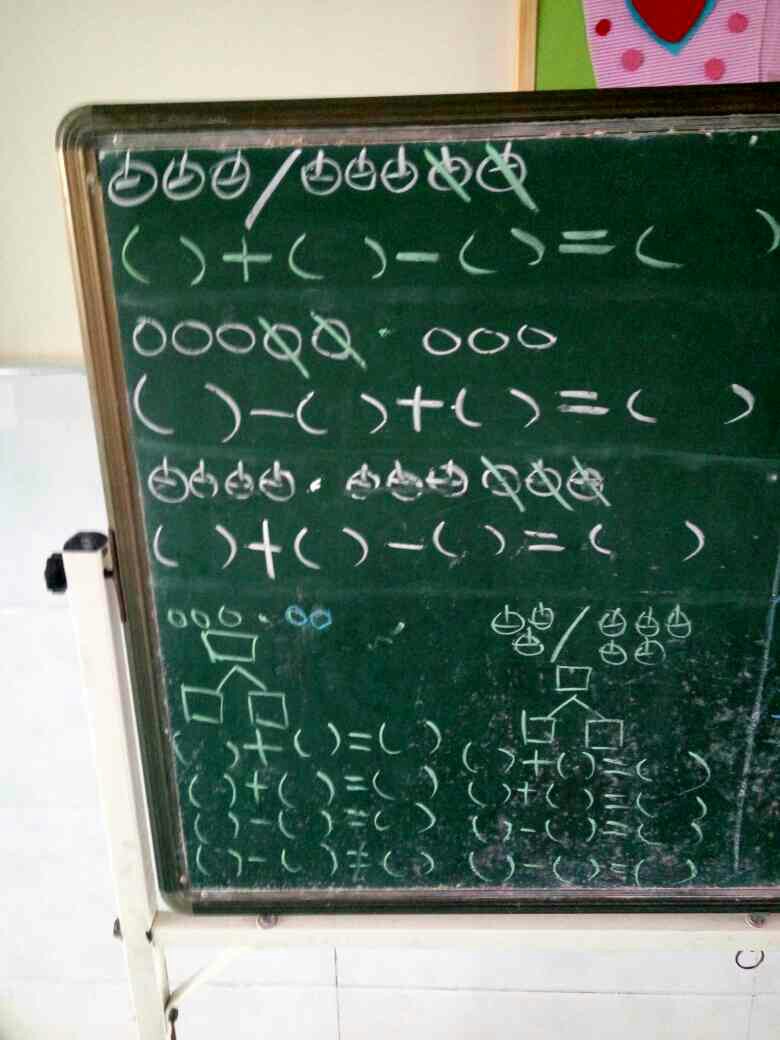 ( ) + ( ) - ( ) = ( )
( ) - ( ) + ( ) = ( )
( ) + ( ) - ( ) = ( )
( ) + ( ) = ( )
( ) + ( ) = ( )
( ) - ( ) = ( )
( ) - ( ) = ( )
( ) + ( ) = ( )
( ) + ( ) = ( )
( ) - ( ) = ( )
( ) - ( ) = ( )